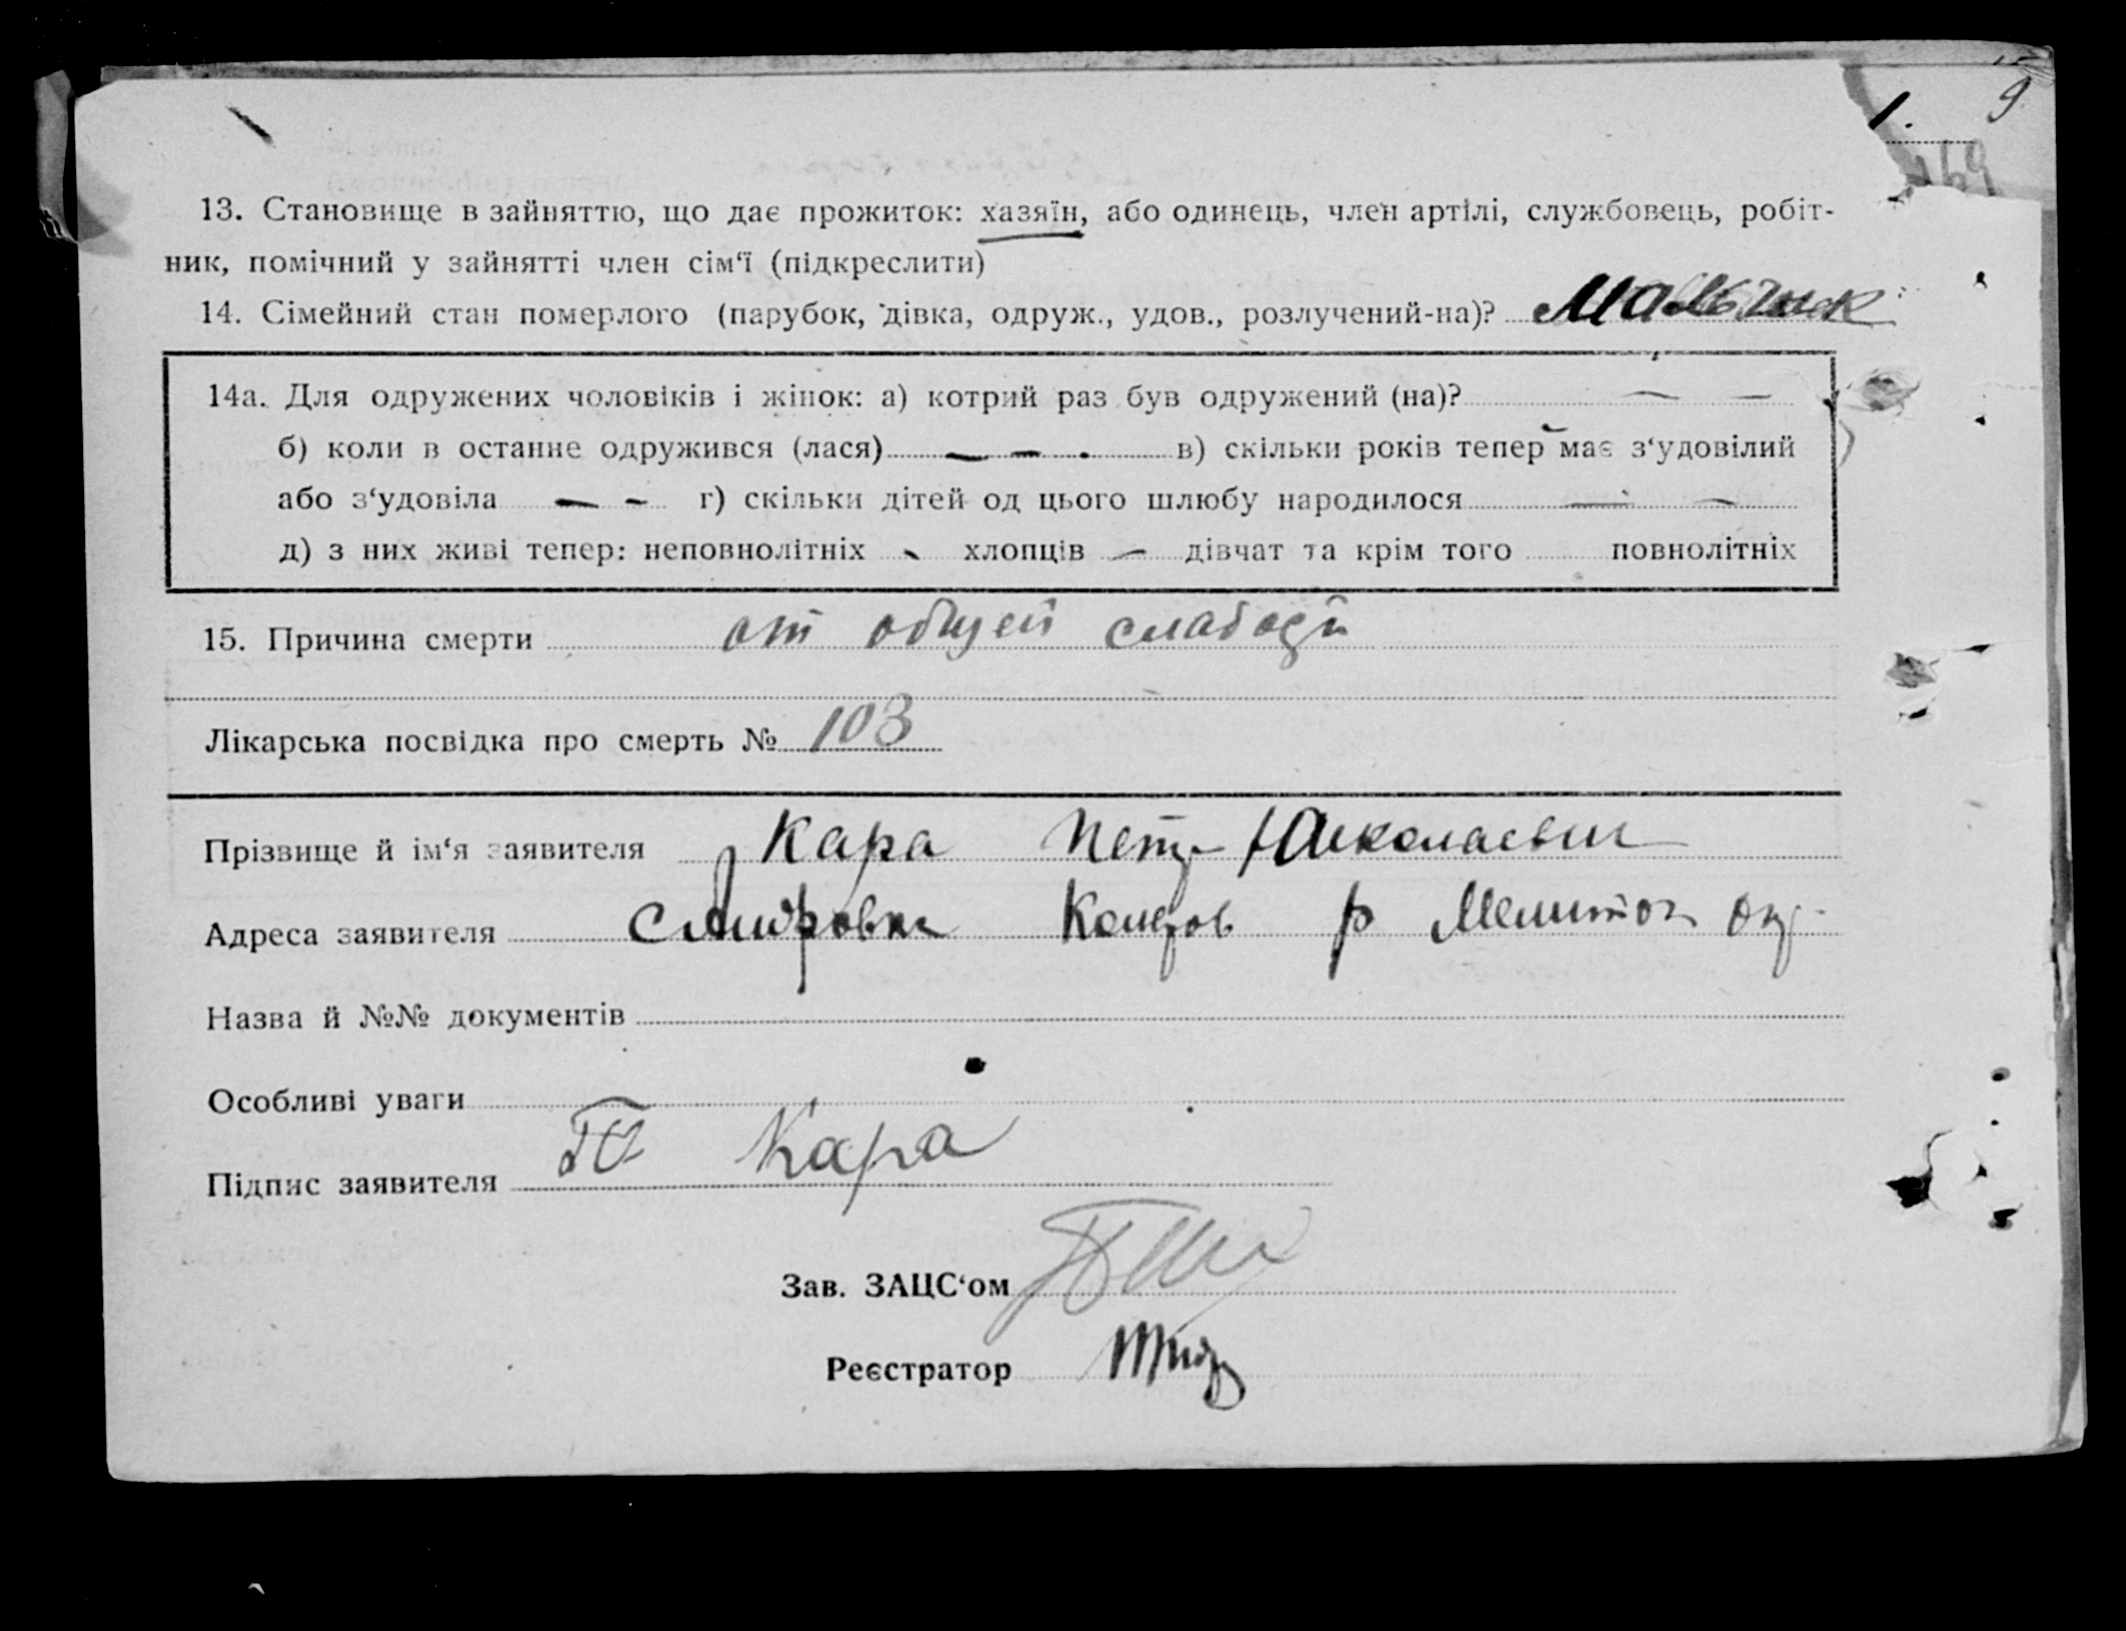 1. 9
169
13. Становище в зайняттю, що дає прожиток: хазяїн, або одинець, член артілі, службовець, робіт-
ник, помічний у зайнятті член сім‘ї (підкреслити)
14. Сімейний стан померлого (парубок, дівка, одруж., удов., розлучений-на)? Мальчик
14а. Для одружених чоловіків і жінок: а) котрий раз був одружений (на)? — —
б) коли в останне одружився (лася) — — . в) скільки років тепер має з‘удовілий
або з‘удовіла — — г) скільки дітей од цього шлюбу народилося — —
д) з них живі тепер: неповнолітніх - хлопців — дівчат та крім того повнолітніх
15. Причина смерти от общей слабости
Лікарська посвідка про смерть № 103
Прізвище й ім‘я заявителя Кара Петр Николаевич
Адреса заявителя р Мелитоп окр
Назва й №№ документів
Особливі уваги
Підпис заявителя Кара
Зав. ЗАЦС‘ом
Реєстратор